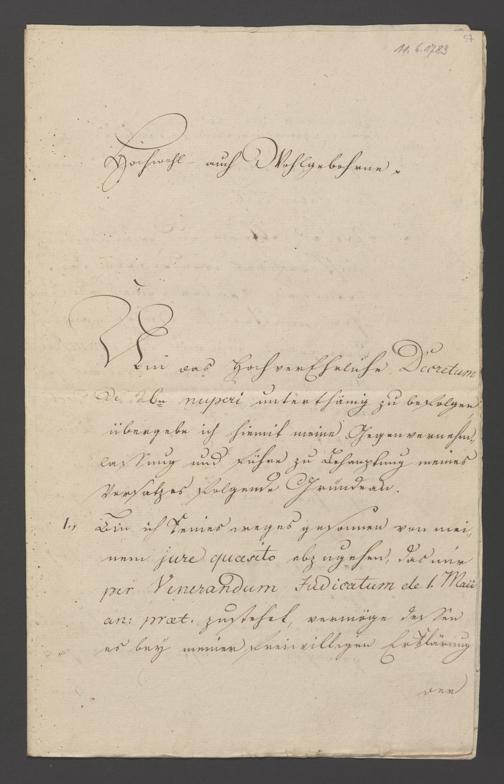 57
11. 6. 1783
Hochwohl- auch Wohlgebohrne.
Um das HochverEhrliche Decretum
de 26ten nuperi unterthänig zu befolgen
übergebe ich hiemit meine Gegenvernehm,
lassung und führe zu Behauptung meines
Versatzes folgende Gründe an.
1., Bin ich keines weges gesonnen von mei,
nem jure quæsito abzugehen, das mir
per Venerandum Judicatum de 1. Maii
an: præt. zustehet, vermöge dessen
es bey meiner freiwilligen Erklärung